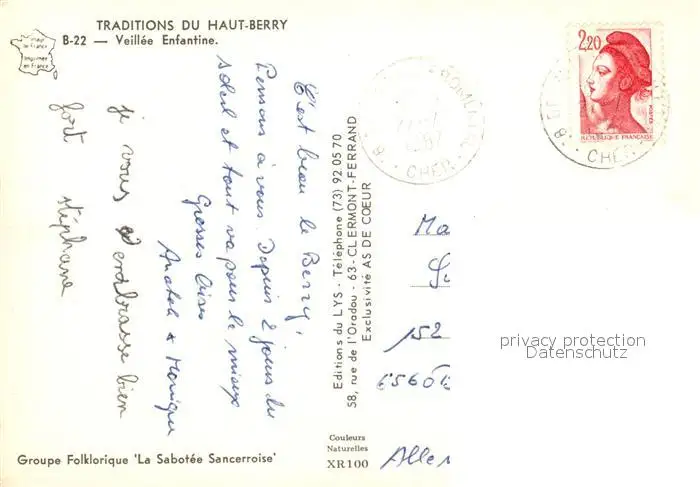 TRADITIONS DU HAUT-BERRY
B-22 — Veillée Enfantine.
C'est beau le Berry!
Pensons à vous. Depuis 2 jours du
soleil et tout va pour le mieux
Grosses bises
Anatole & Monique
je vous embrasse bien
fort stéphane
Groupe Folklorique 'La Sabotée Sancerroise'
Editions du LYS - Téléphone (73) 92 05 70
58, rue de l'Oradou - 63-CLERMONT-FERRAND
Exclusivité AS DE CŒUR
Couleurs
Naturelles
XR100
2,20
POSTES
REPUBLIQUE FRANÇAISE
CHER
CHER
Ma
152
6560
Alle
privacy protection
Datenschutz